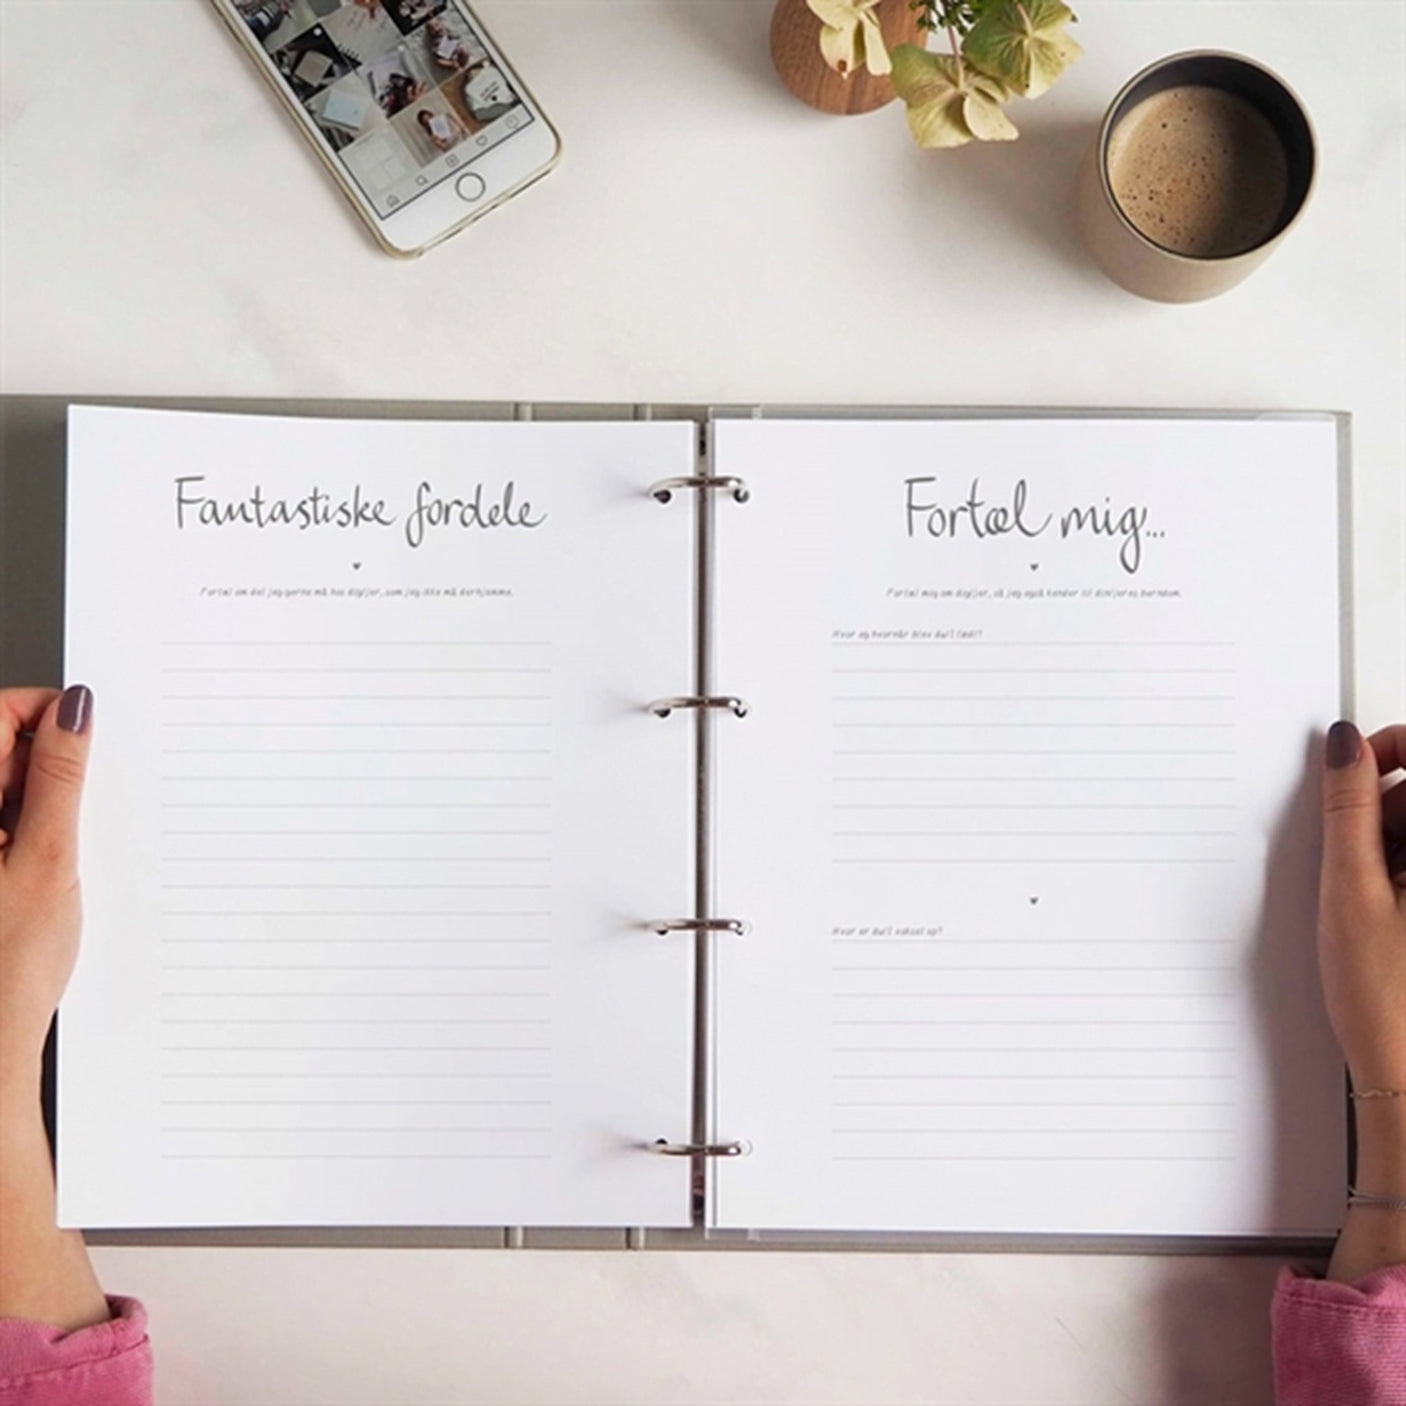 Fantastiske fordele
Fortæl om det jeg gerne må hos dig/jer, som jeg ikke må derhjemme.
Fortæl mig...
Fortæl mig om dig/jer, så jeg også kender til din/jeres barndom.
Hvor og hvornår blev du/I født?
Hvor er du/I vokset op?